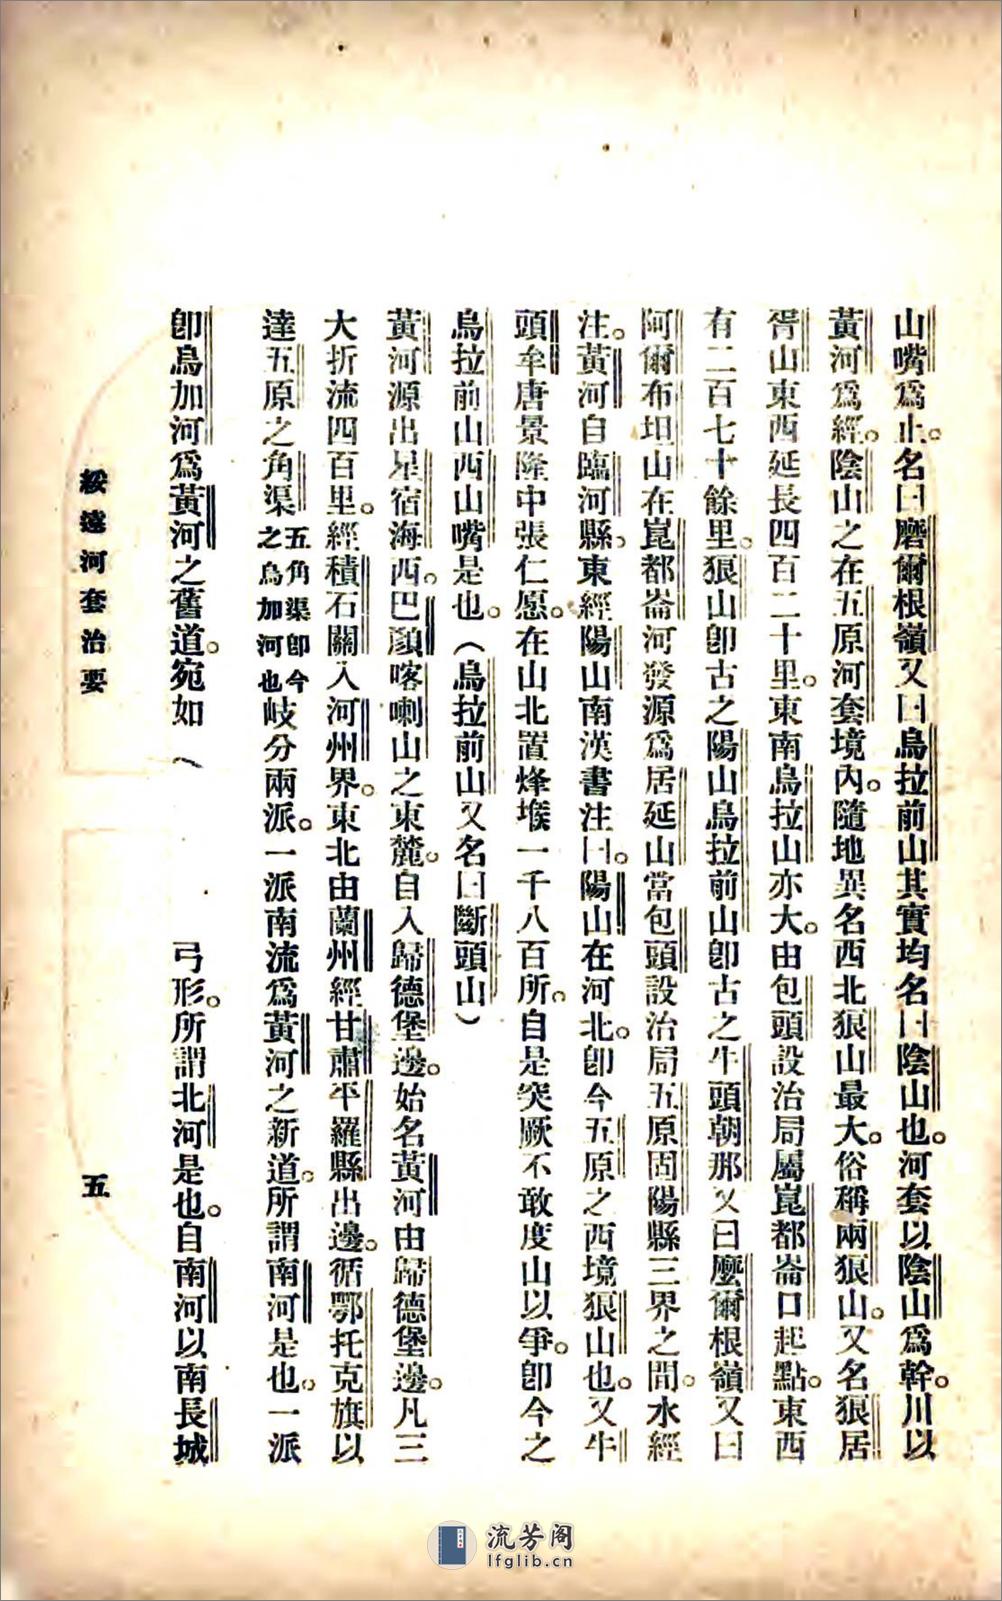 山嘴爲止。名曰磨爾根嶺又曰烏拉前山其實均名曰陰山也。河套以陰山爲幹。川以
黃河爲經。陰山之在五原河套境內。隨地異名西北狼山最大。俗稱兩狼山。又名狼居
胥山東西延長四百二十里。東南烏拉山亦大。由包頭設治局屬崑都崙口起點。東西
有二百七十餘里。狼山卽古之陽山烏拉前山卽古之牛頭朝那又曰麼爾根嶺又曰
阿爾布坦山在崑都崙河發源爲居延山當包頭設治局五原固陽縣三界之間。水經
注。黃河自臨河縣。東經陽山南漢書注曰。陽山在河北。卽今五原之西境狼山也。又牛
頭牟唐景隆中張仁愿。在山北置烽堠一千八百所。自是突厥不敢度山以爭。卽今之
烏拉前山西山嘴是也。（烏拉前山又名曰斷頭山）
黃河源出星宿海。西巴顏喀喇山之東麓。自入歸德堡邊。始名黃河由歸德堡邊。凡三
大折流四百里。經積石關入河州界。東北由蘭州經甘肅平羅縣出邊。循鄂托克旗以
達五原之角渠五角渠卽今之烏加河也岐分兩派。一派南流爲黃河之新道。所謂南河是也。一派
卽烏加河爲黃河之舊道。宛如（弓形。所謂北河是也。自南河以南長城
綏遠河套治要
五
流芳阁
lfglib.cn